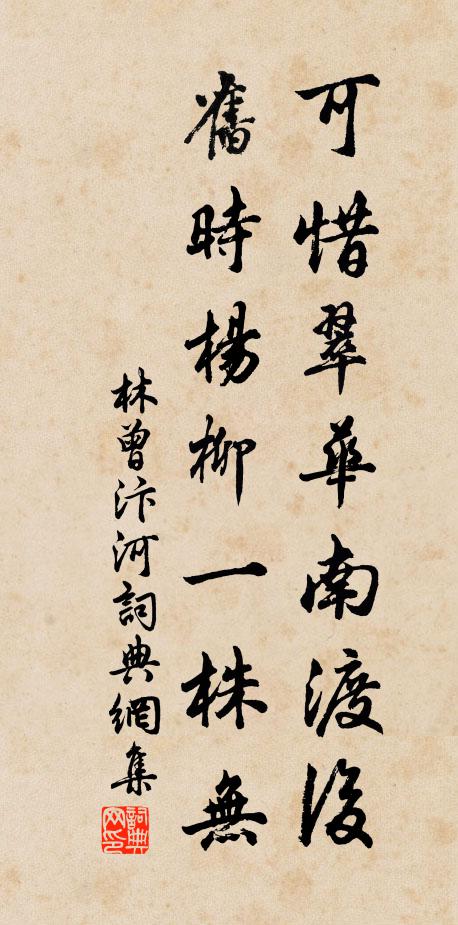 可惜翠華南渡後
舊時楊柳一株無
林曾汴河詞典網集
詞典网印